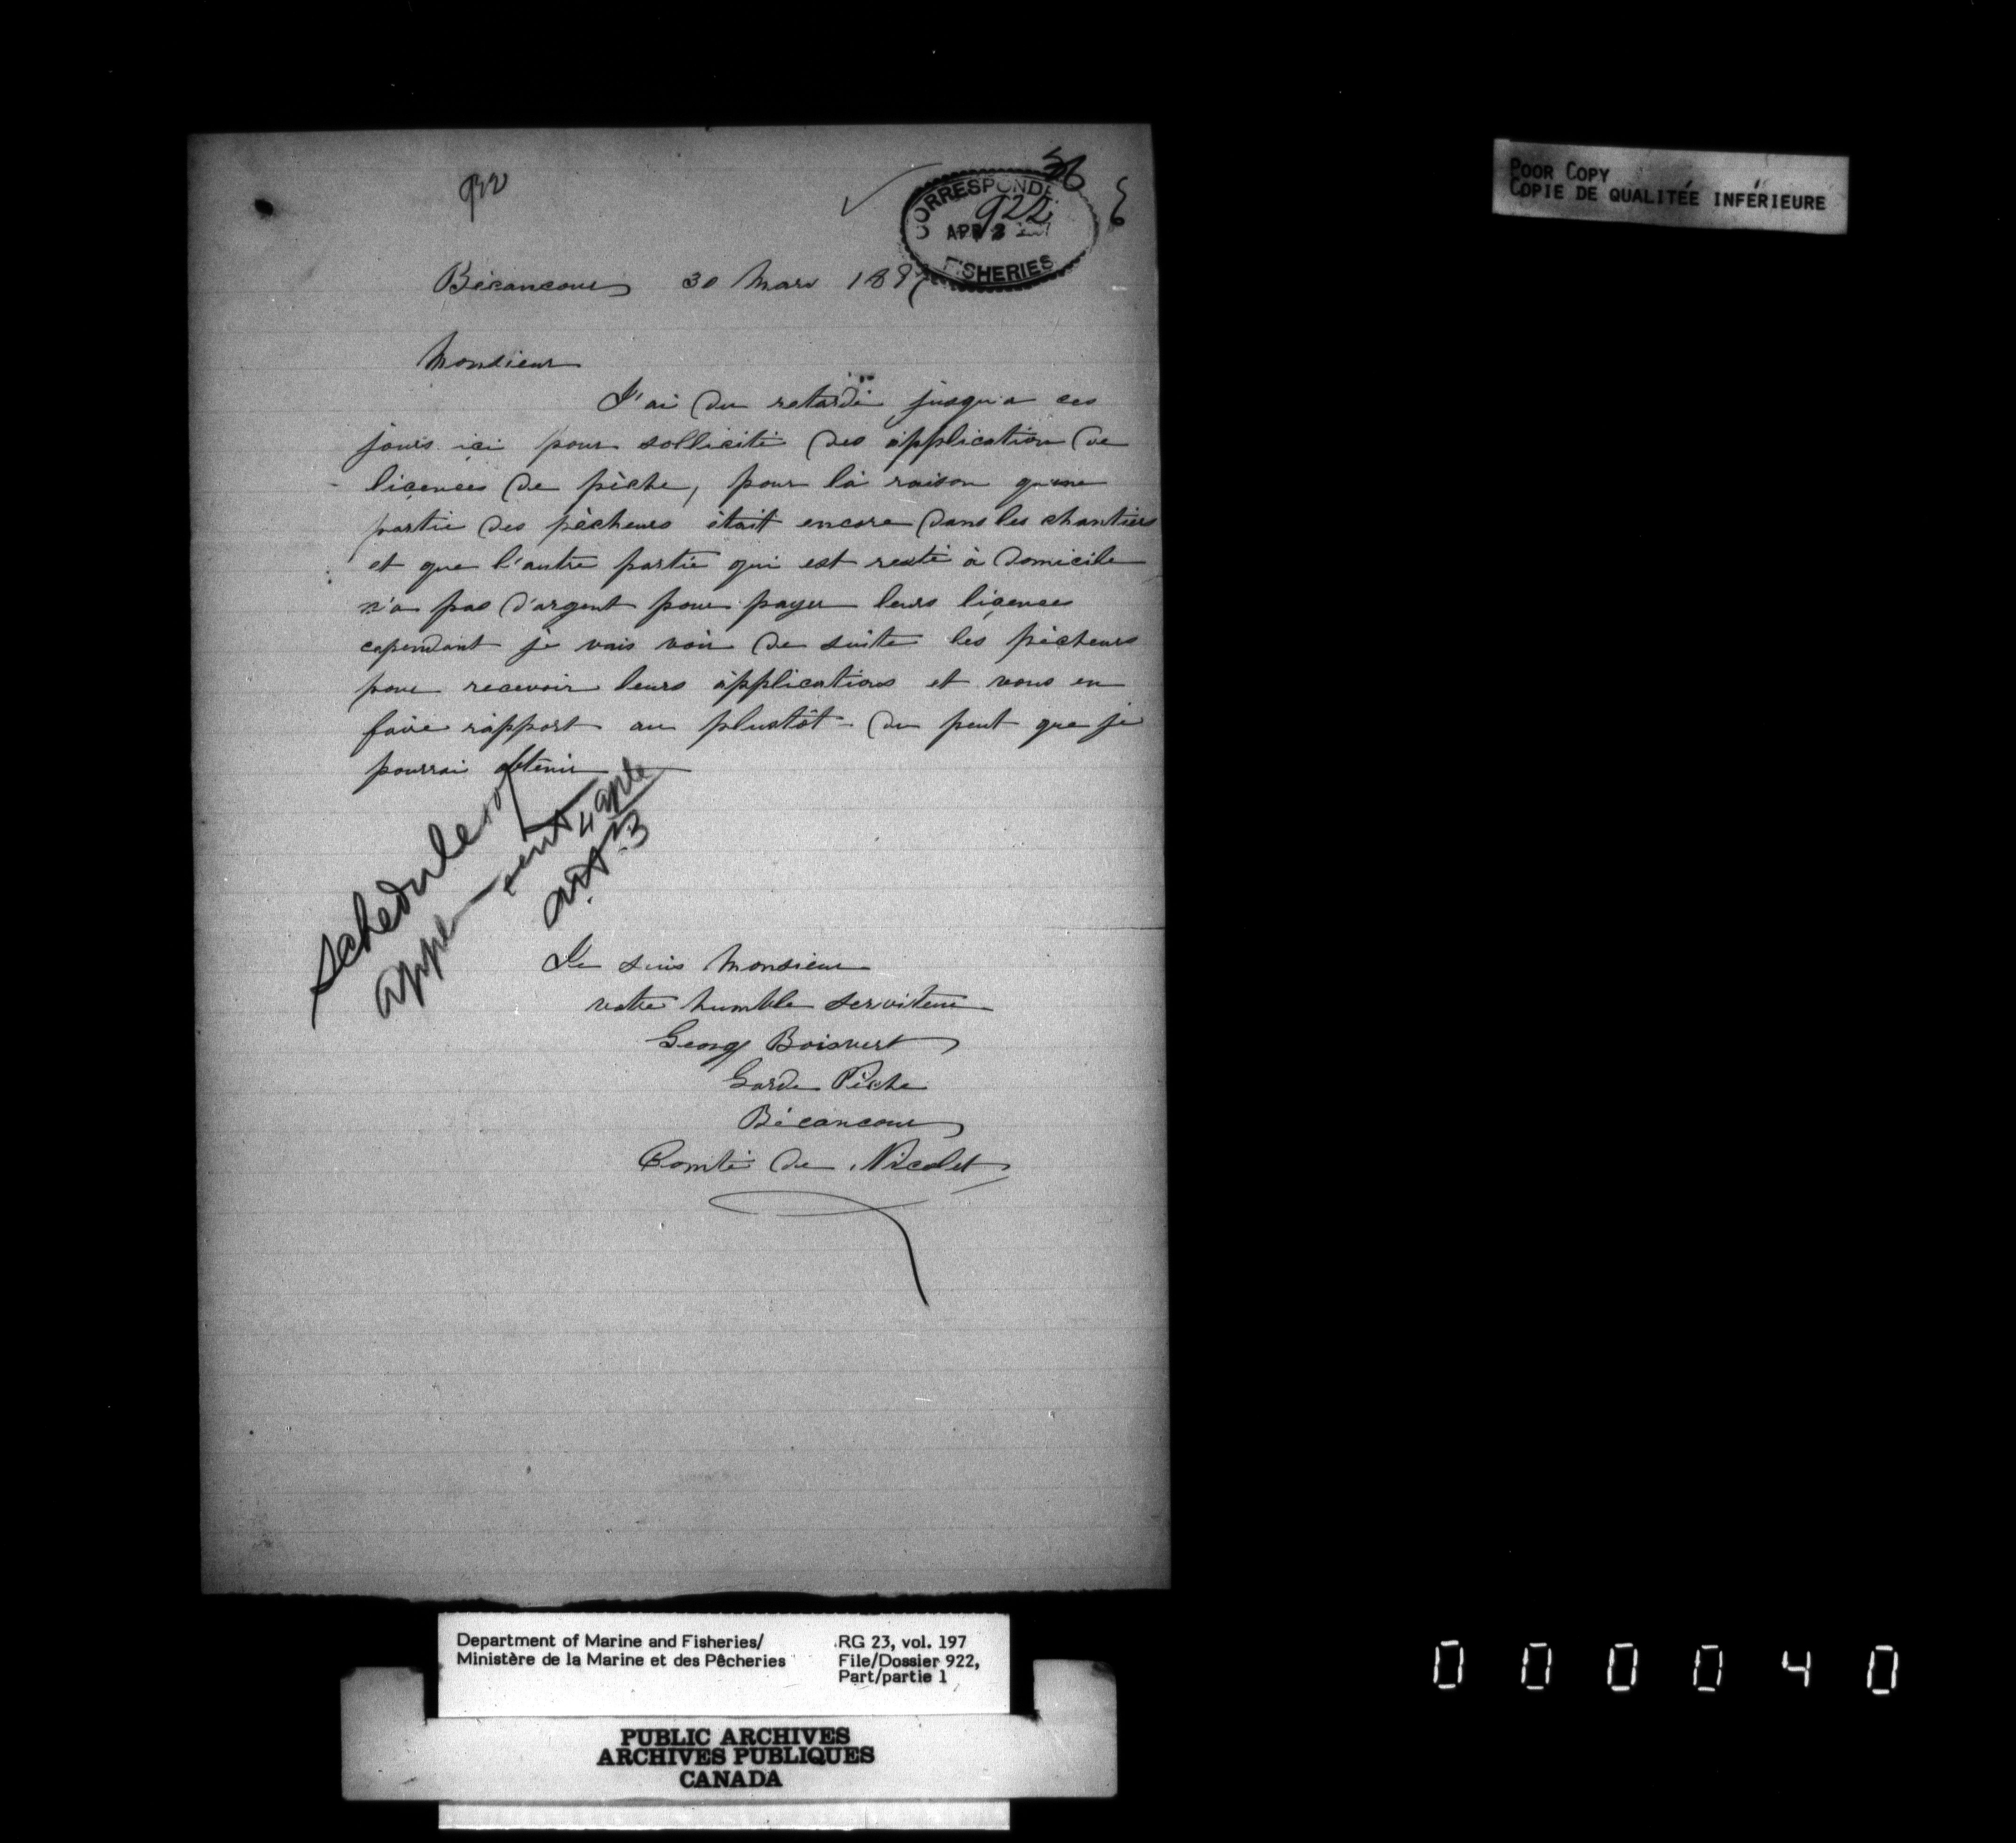 922
36
CORRESPONDE
922
APR 2
FISHERIES
Bécancour 30 Mars 1897
Monsieur
J'ai du retardé jusqu'a ces
jours ici pour sollicité des application de
liçences de pèche, pour la raison qu'une
partie des pècheurs était encore dans les chantiers
et que l'autre partie qui est resté à domicile
n'a pas d'argent pour payer leurs liçences
cependant je vais voir de suite les pècheurs
pour recevoir leurs applications et vous en
faire rapport au plustôt du peut que je
pourrai obtenir
Schedule of
appl ent 4 aple
art 23
Je suis Monsieur
votre humble serviteur
Georg Boisvert
Garde Pêche
Bécancour
Comté de Nicolet
POOR COPY
COPIE DE QUALITÉE INFÉRIEURE
Department of Marine and Fisheries/
Ministère de la Marine et des Pêcheries
RG 23, vol. 197
File/Dossier 922,
Part/partie 1
PUBLIC ARCHIVES
ARCHIVES PUBLIQUES
CANADA
000040